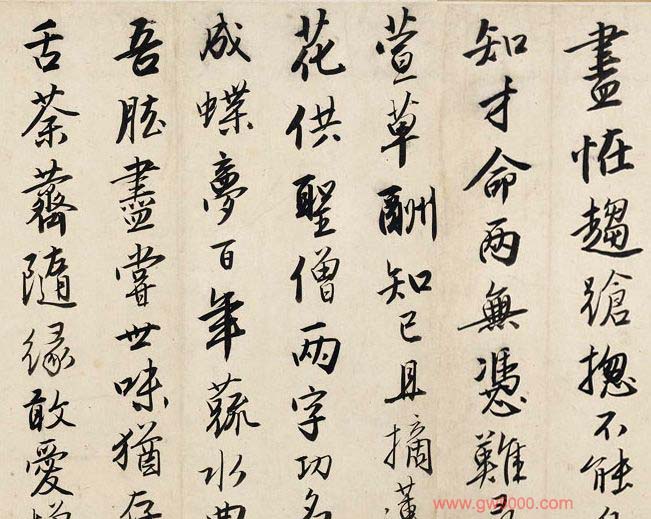 盡怪趨蹌揔不能
知才命兩無憑難
萱草酬知己且摘
花供聖僧兩字功名
成蝶夢百年蔬水
吾肱盡嘗世味猶存
舌荼薺隨緣敢愛
www.gw2000.com